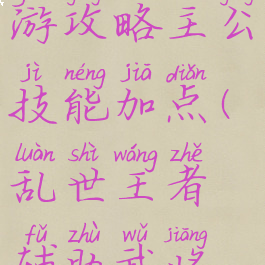 游攻略主公
jì néng jiā diǎn
技能加点(
luàn shì wáng zhě
乱世王者
fǔ zhù wǔ jiāng
辅助武将